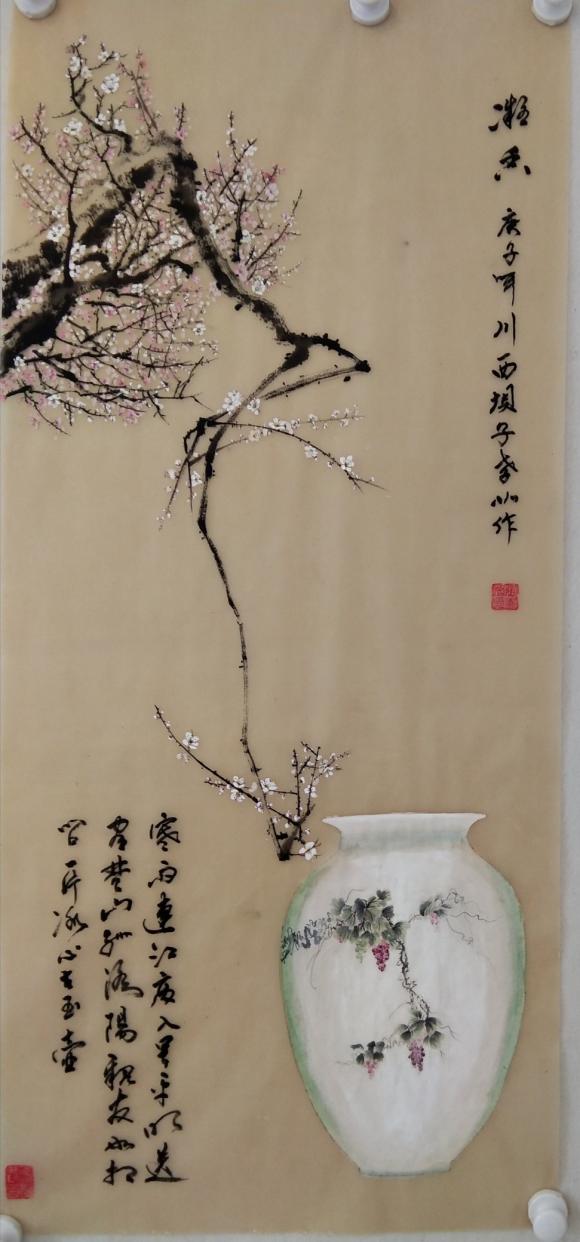 凝香
庚子年川西坝子作
寒雨連江夜入吴平明送
客楚山孤洛陽親友如相
问一片冰心在玉壶